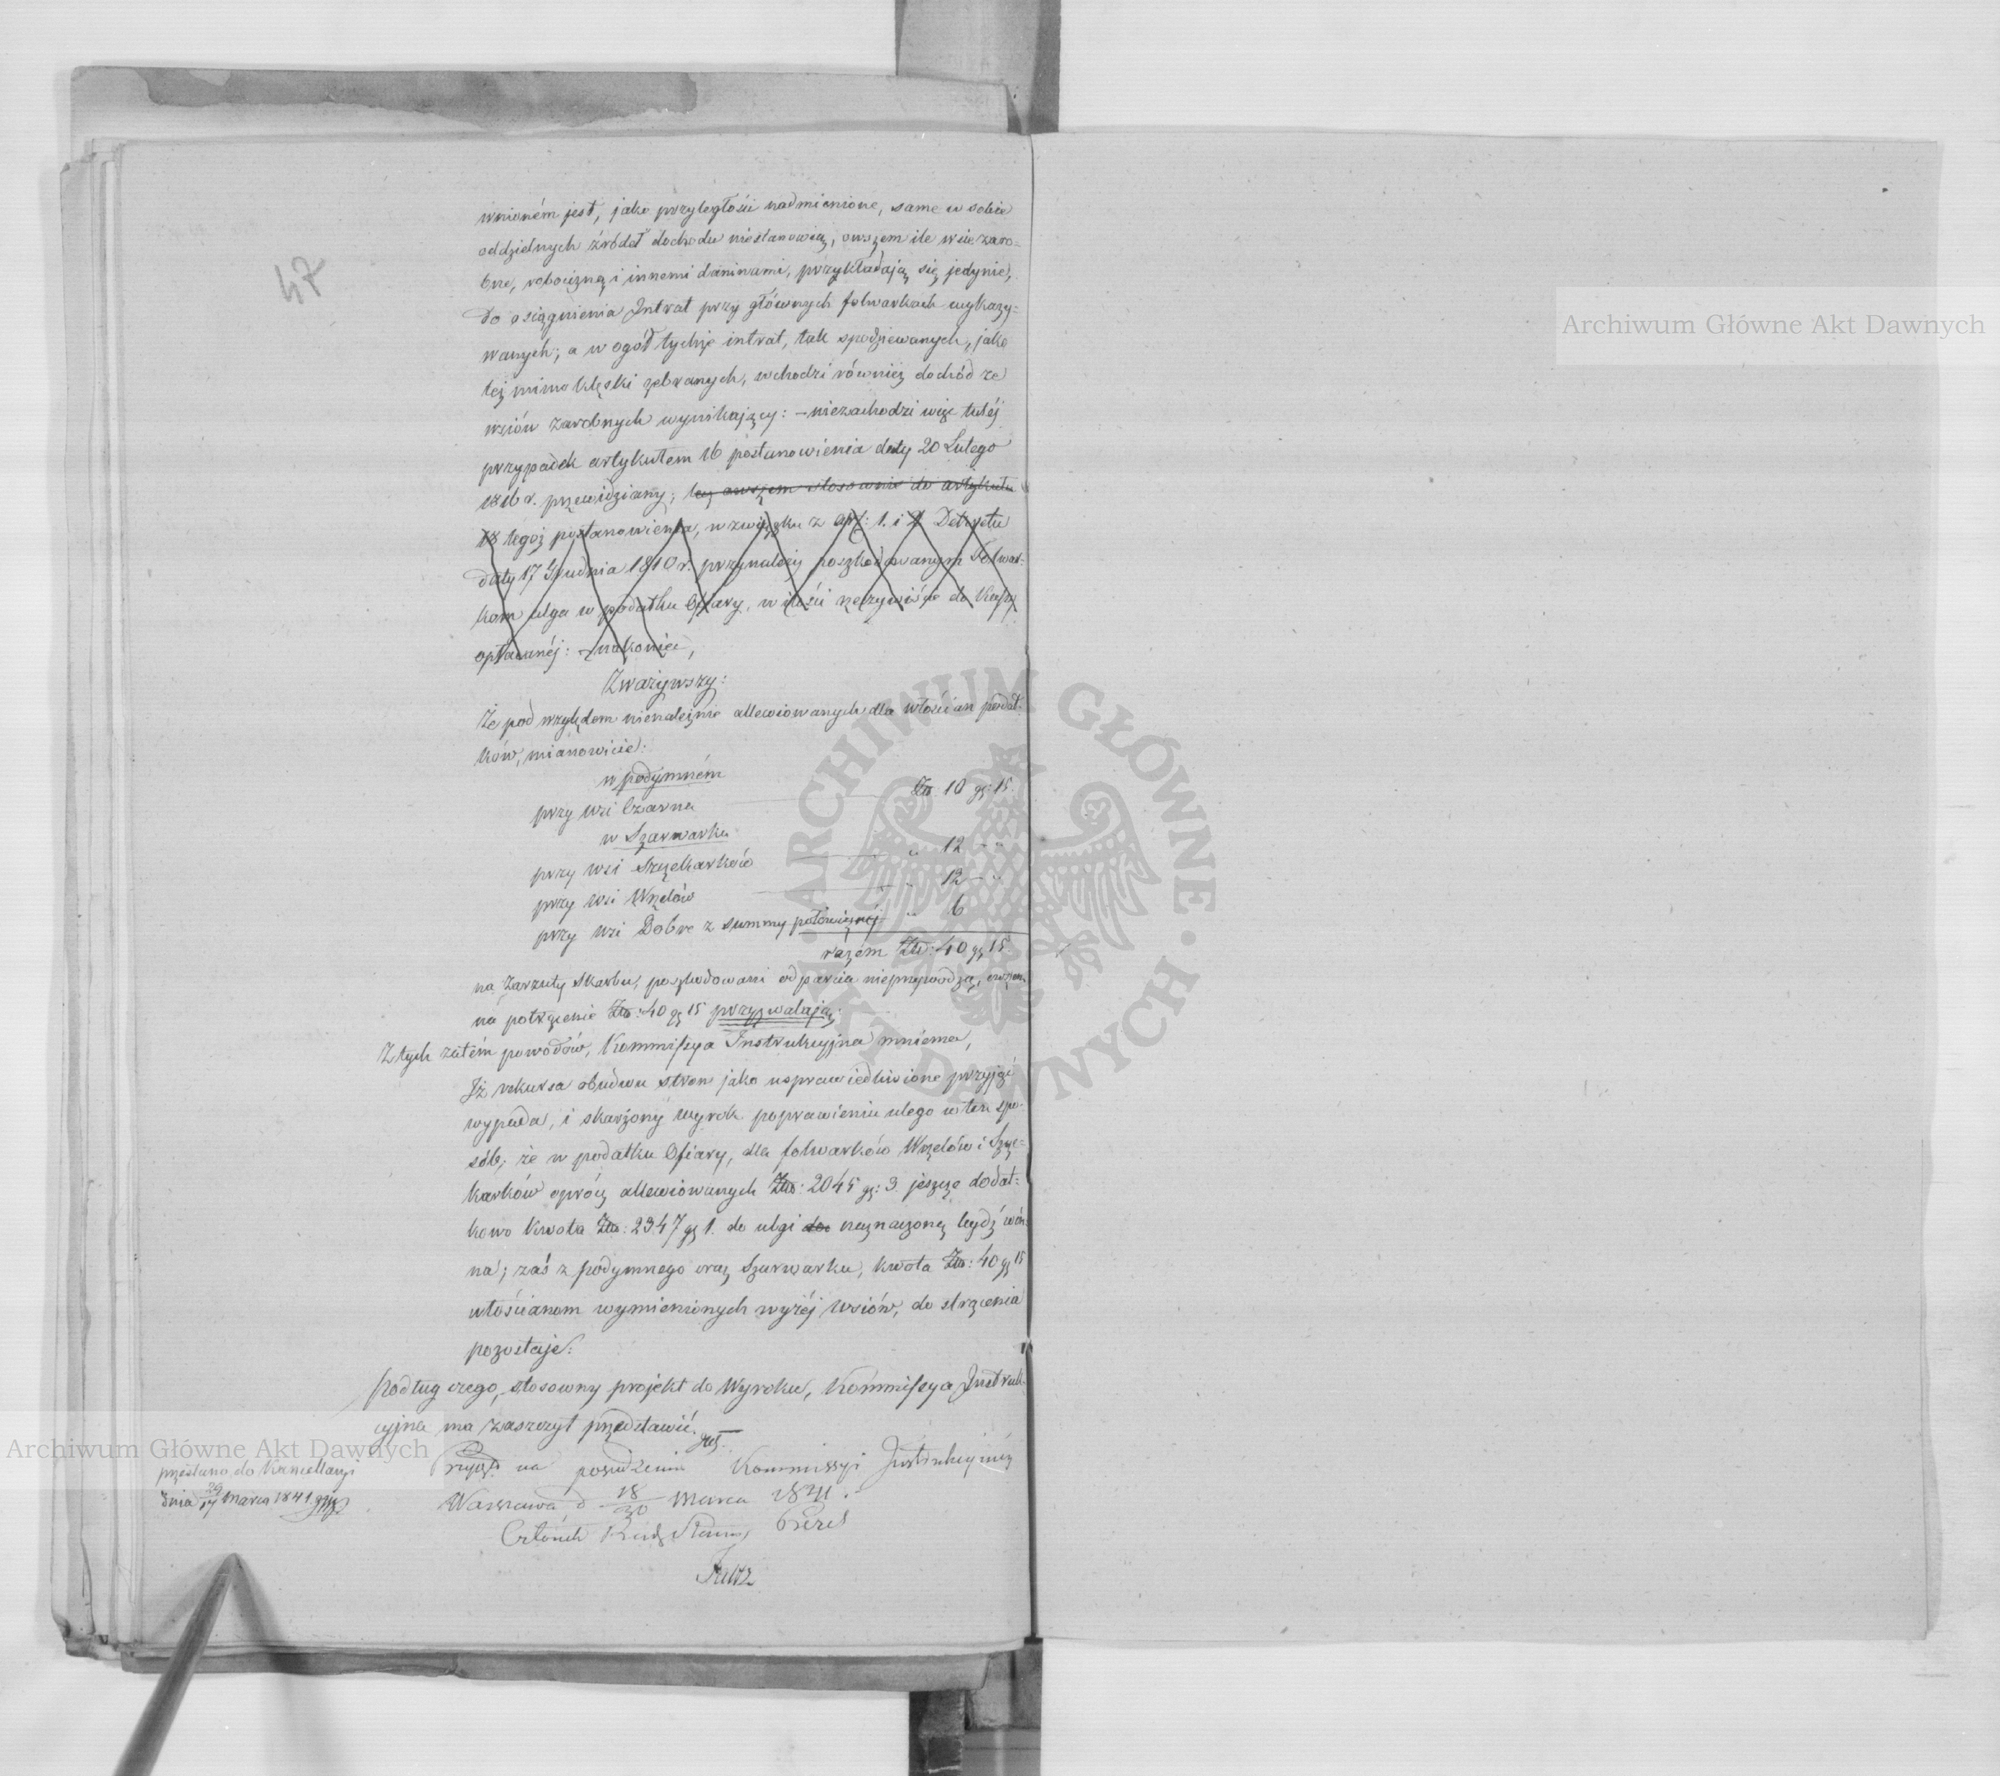 47
wnioném jest, jako przyległości nadmienione, same w sobie
oddzielnych źródeł dochodu niestanowią, owszem ile wsie zaro-
bne, robocizną i innemi daninami, przykładają się jedynie,
do osiągnienia Intrat przy głównych folwarkach wykazy-
wanych; a w ogół tychże intrat, tak spodziewanych, jako
też mimo klęski zebranych, wchodzi również dochód ze
wsiów zarobnych wynikający: – niezachodzi więc tutéj
przypadek artykułem 16 postanowienia daty 20 Lutego
1816 r. przewidziany; lecz owszem stosownie do artykułu
18 tegoż postanowienia, w związku z art: 1. i 2 Dekretu
daty 17 Grudnia 1810 r. przynależy poszkodowanym Folwar-
kom ulga w podatku Ofiary, w ilości rzeczywiście do Kassy
opłacanéj: – nakoniec,
Zważywszy:
Że pod względem nienależnie allewiowanych dla włościan podat-
ków, mianowicie:
w podymném
przy wsi Czarna Złp. 10 gr: 15.
w Szarwarku
przy wsi Szczekarków " 12 – "
przy wsi Wrzelów " 12 – "
przy wsi Dobre z summy połowicznéj " 6
razem Złp: 40 gr 15.
na zarzuty Skarbu, poszkodowani odparcia nieprzywodzą, owszem
na potrącenie Złp: 40 gr 15 przyzwalają;
Z tych zatém powodów, Kommissya Instrukcyjna mniema,
Iż rekursa obudwu stron jako usprawiedliwione przyjąć
wypada, i skarżony wyrok poprawieniu ulega w ten spo-
sób; że w podatku Ofiary, dla folwarków Wrzelów i Szcze-
karków oprócz allewiowanych Złp: 2045 gr: 3. jeszcze dodat-
kowo kwota Złp: 2347 gr 1. do ulgi do wyznaczoną bydź win-
na; zaś z podymnego oraz Szarwarku, kwota Złp: 40 gr 15
włościanom wymienionych wyżéj wsiów, do strącenia
pozostaje.
Podług czego, stosowny projekt do Wyroku, Kommissya Instruk-
cyjna ma zaszczyt przedstawić.
Przyjęto na posiedzeniu Kommissyi Instrukcyjnéj
Warszawa d 18/30 Marca 1841.
Członek Rady Stanu
przesłano do Kancellaryi
dnia 29/17 Marca 1841
Archiwum Główne Akt Dawnych
Archiwum Główne Akt Dawnych
ARCHIWUM GŁÓWNE AKT DAWNYCH